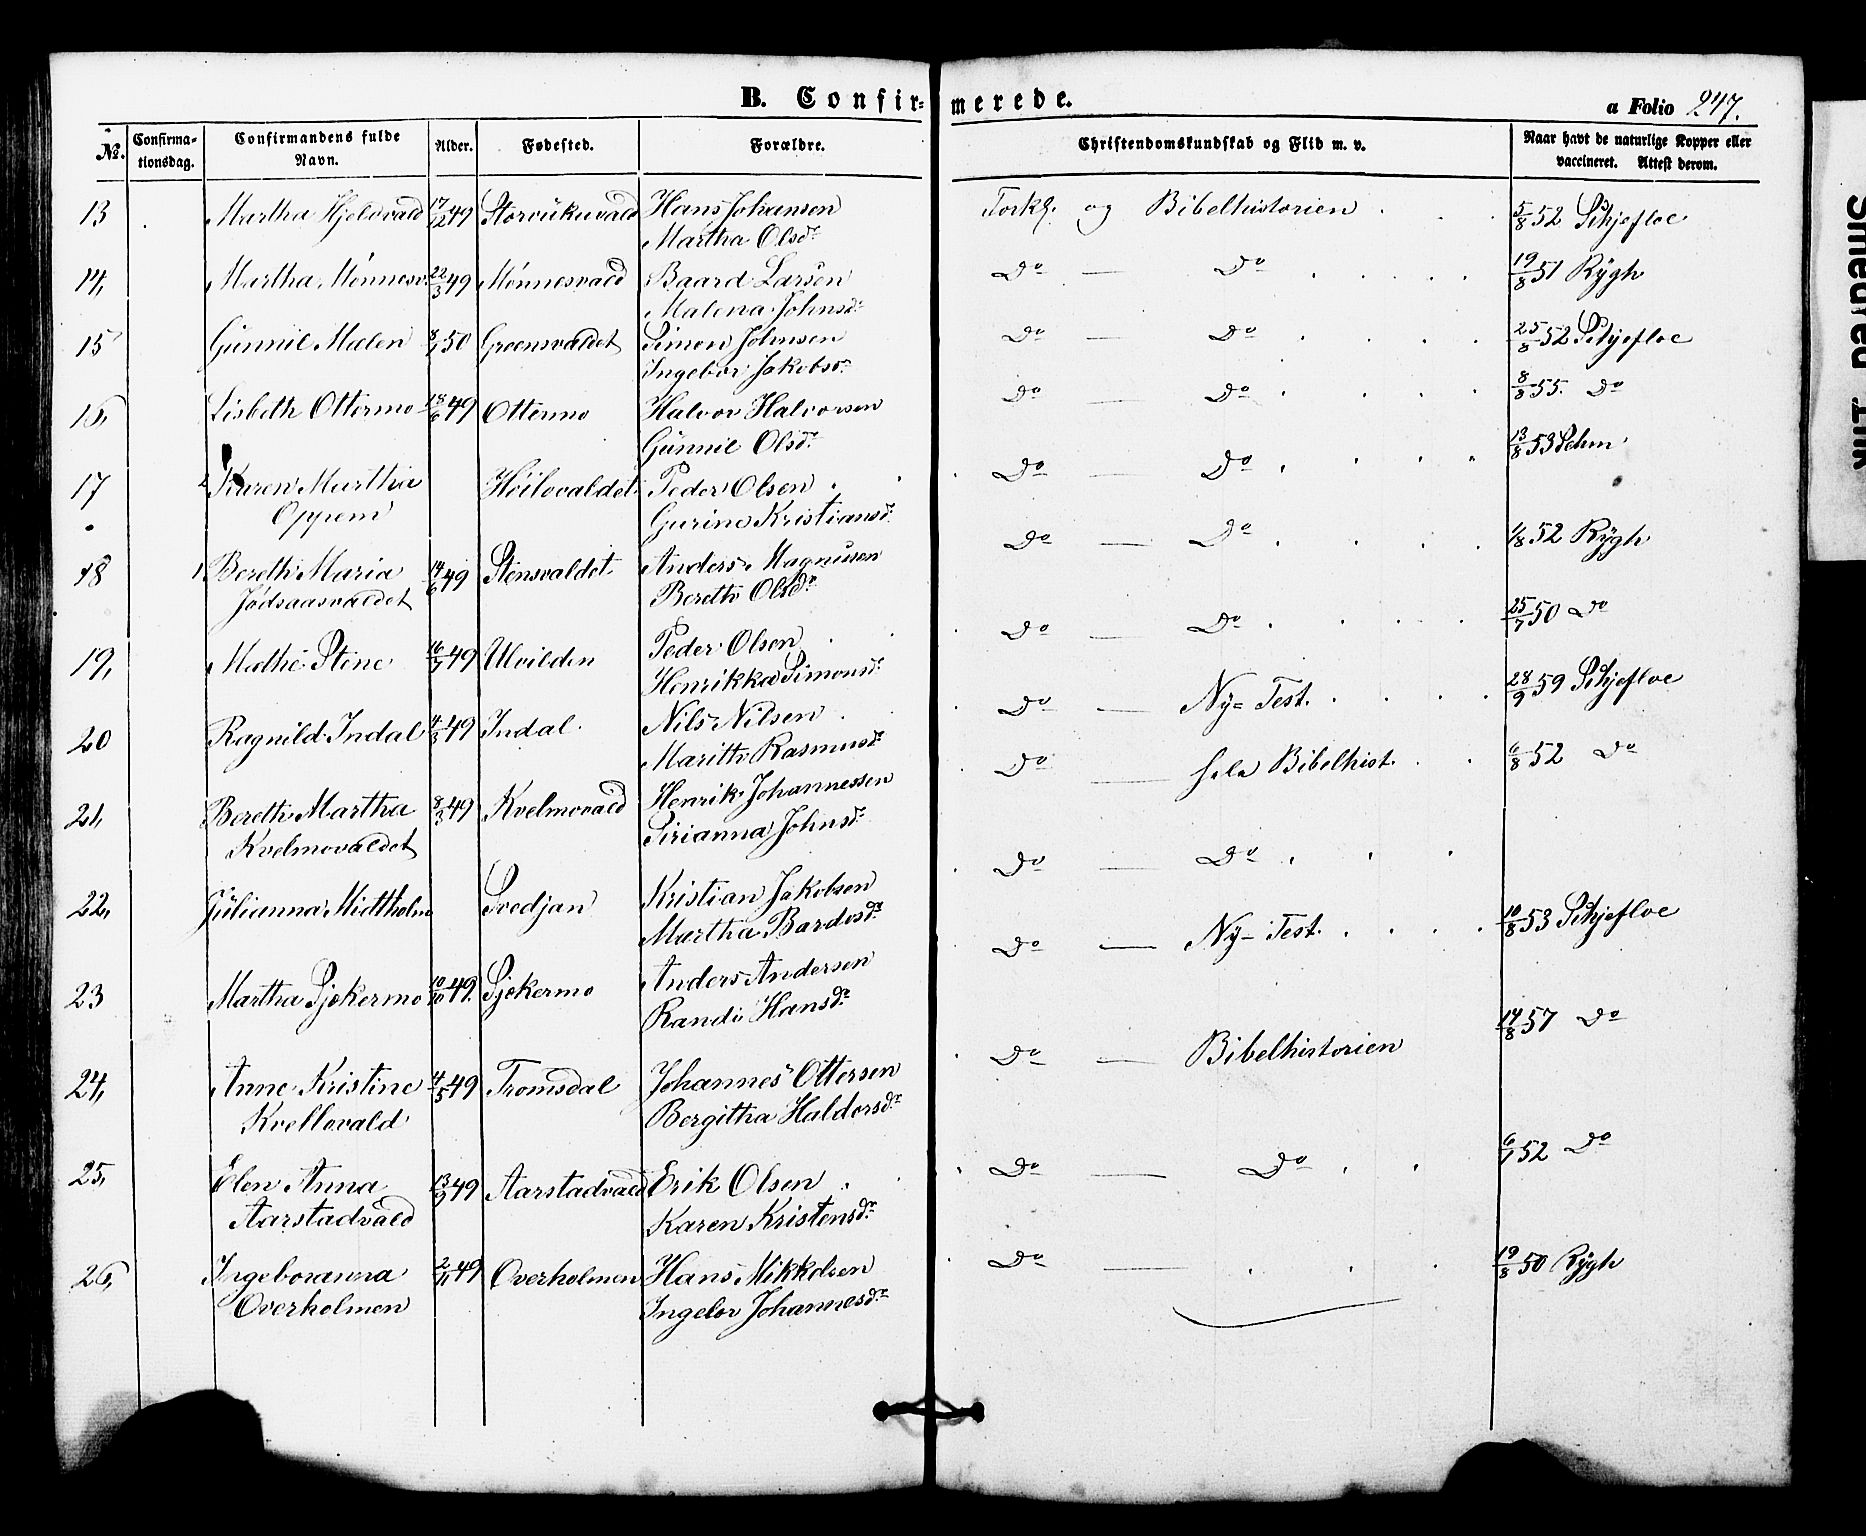 B. Confir=merede.
a Folio 247.
№. Confirmationsdag. Confirmandens fulde Navn. Alder. Fødested. Forældre. Christendomskundskab og Flid m. v. Naar havt de naturlige Kopper eller vaccineret. Attest derom.
13 Martha Hjelovald 17/12 49 Storvukuvald Hans Johansen Forkl. og Bibelhistorien 5/8 52 Skjefloe
Martha Olsdr
14, Martha Mønnesv. 22/3 49 Mønnesvald Baard Larsen Do — Do 19/8 51 Rÿgh
Malena Johnsdr
15 Gunnil Malen 8/1 50 Greensvaldet Simon Johnsen Do — Do 25/8 52 Skjefloe
Ingebor Jakobsdr
16, Lisbeth Ottermo 18/6 49 Ottermo Halvor Halvorsen Do — Do 8/8 55. Do
Gunnil Olsdr
17 2 Karen Martha Høilovaldet Peder Olsen Do — Do 13/8 53 Sehm
Oppem Gurine Kristiansdr
18 1 Bereth Maria 14/6 49 Stensvaldet Anders Magnusen Do — Do 1/8 52 Rÿgh
Jødsaasvaldet Bereth Olsdr
19, Mathe Stene 16/7 49 Ulvilden Peder Olsen Do — Do 25/7 50 Do
Henrikka Simonsdr
20 Ragnild Indal 4/3 49 Indal Nils Nilsen Do — Ny= Test. 28/9 59 Skjefloe
Marith Rasmusdr
21, Bereth Martha 8/3 49 Kvelmovald Henrik Johannessen Do — hele Bibelhist. 6/8 52 Do
Kvelmovaldet Sirianna Johnsdr
22, Julianna Midtholm Svedjan Kristian Jakobsen Do — Do
Martha Bardosdr
23 Martha Sjøkermo 10/10 49. Sjøkermo Anders Andersen Do — Ny- Test. 10/8 53 Skjefloe
Randi Hansdr
24, Anne Kristine 4/5 49 Tromsdal Johannes Ottersen Do — Bibelhistorien 14/8 57 Do
Kvellovald Bergitha Haldorsdr
25, Elen Anna 13/9 49 Aarstadvald Erik Olsen Do — Do 6/1 52 Do
Aarstadvald Karen Kristensdr
26, Ingeboranna 2/11 49 Overholmen Hans Mikkelsen Do — 19/8 50 Rÿgh
Overholmen Ingebor Johannesdr